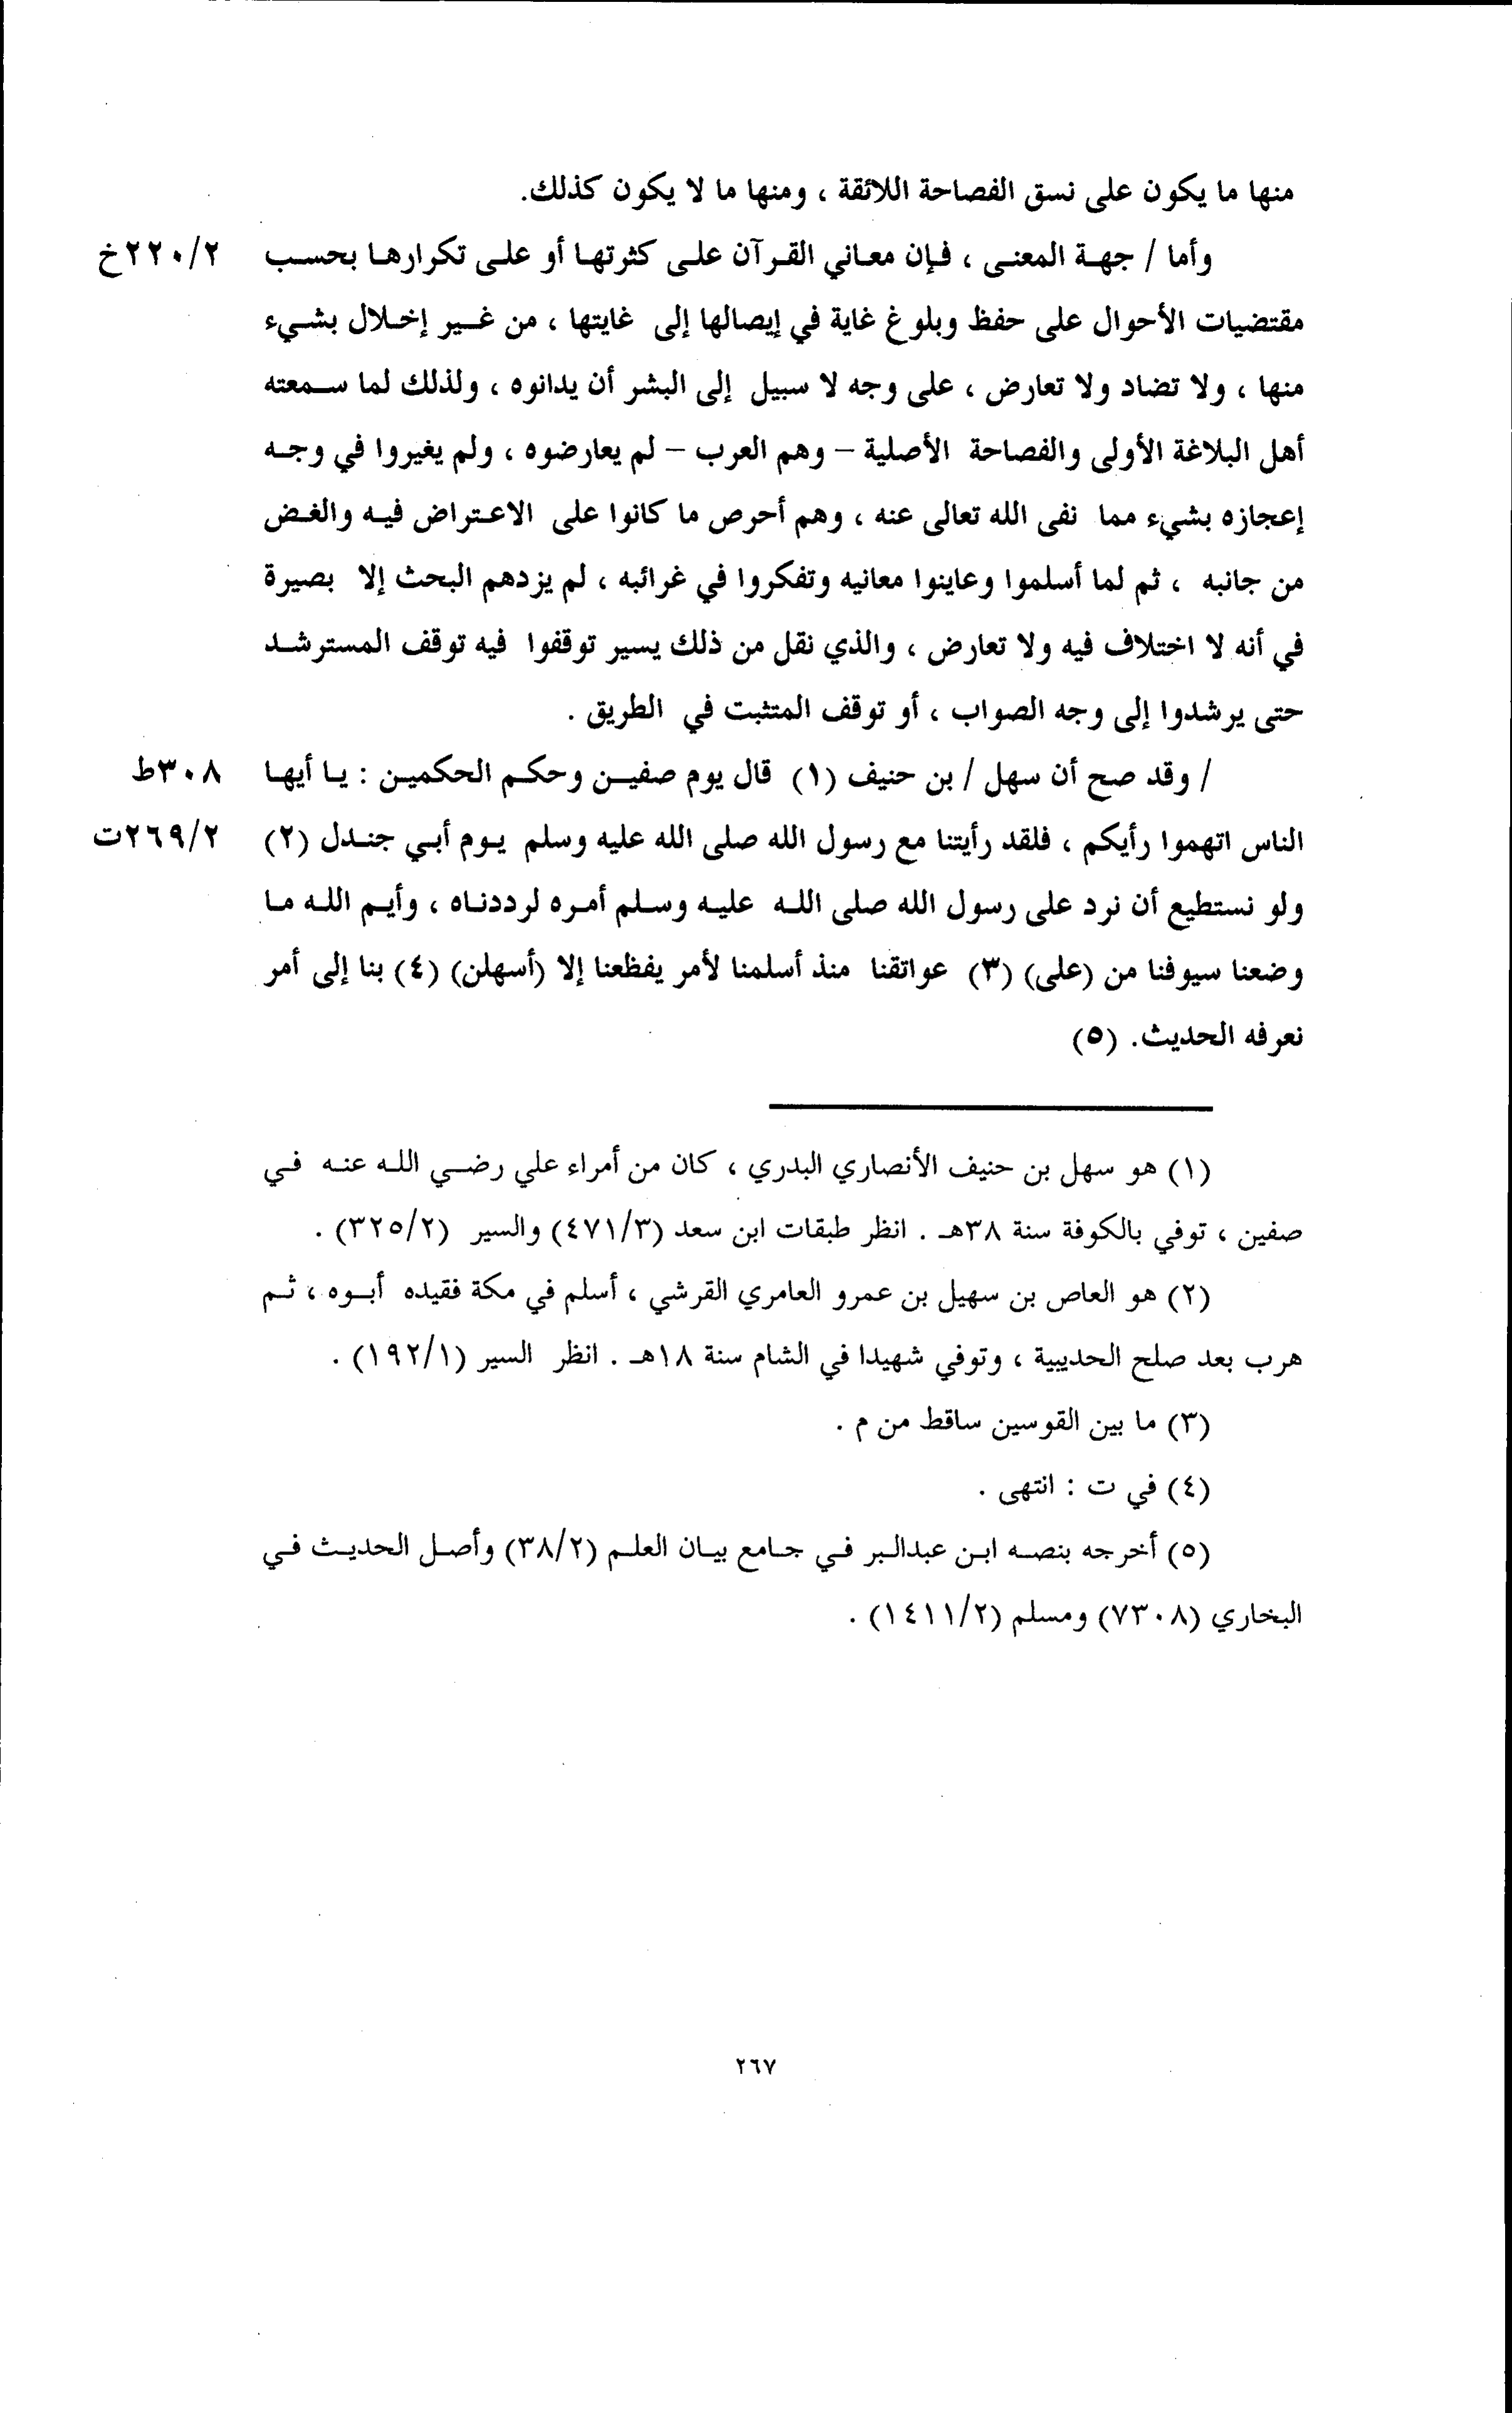 منها ما يكون على نسق الفصاحة اللائقة ، ومنها ما لا يكون كذلك.
وأما / جهة المعنى ، فإن معاني القرآن على كثرتها أو على تكرارها بحسب ٢٢٠/٢خ
مقتضيات الأحوال على حفظ وبلوغ غاية في إيصالها إلى غايتها ، من غير إخلال بشيء
منها ، ولا تضاد ولا تعارض ، على وجه لا سبيل إلى البشر أن يدانوه ، ولذلك لما سمعته
أهل البلاغة الأولى والفصاحة الأصلية – وهم العرب – لم يعارضوه ، ولم يغيروا في وجه
إعجازه بشيء مما نفى الله تعالى عنه ، وهم أحرص ما كانوا على الاعتراض فيه والغض
من جانبه ، ثم لما أسلموا وعاينوا معانيه وتفكروا في غرائبه ، لم يزدهم البحث إلا بصيرة
في أنه لا اختلاف فيه ولا تعارض ، والذي نقل من ذلك يسير توقفوا فيه توقف المسترشد
حتى يرشدوا إلى وجه الصواب ، أو توقف المتثبت في الطريق .
/ وقد صح أن سهل / بن حنيف (١) قال يوم صفين وحكم الحكمين : يا أيها ٣٠٨ط
الناس اتهموا رأيكم ، فلقد رأيتنا مع رسول الله صلى الله عليه وسلم يوم أبي جندل (٢) ٢٦٩/٢ت
ولو نستطيع أن نرد على رسول الله صلى الله عليه وسلم أمره لرددناه ، وأيم الله ما
وضعنا سيوفنا من (على) (٣) عواتقنا منذ أسلمنا لأمر يفظعنا إلا (أسهلن) (٤) بنا إلى أمر
نعرفه الحديث. (٥)
(١) هو سهل بن حنيف الأنصاري البدري ، كان من أمراء علي رضي الله عنه في
صفين ، توفي بالكوفة سنة ٣٨هـ . انظر طبقات ابن سعد (٤٧١/٣) والسير (٣٢٥/٢) .
(٢) هو العاص بن سهيل بن عمرو العامري القرشي ، أسلم في مكة فقيده أبوه ، ثم
هرب بعد صلح الحديبية ، وتوفي شهيدا في الشام سنة ١٨هـ . انظر السير (١٩٢/١) .
(٣) ما بين القوسين ساقط من م .
(٤) في ت : انتهى .
(٥) أخرجه بنصه ابن عبدالبر في جامع بيان العلم (٣٨/٢) وأصل الحديث في
البخاري (٧٣٠٨) ومسلم (١٤١١/٢) .
٢٦٧